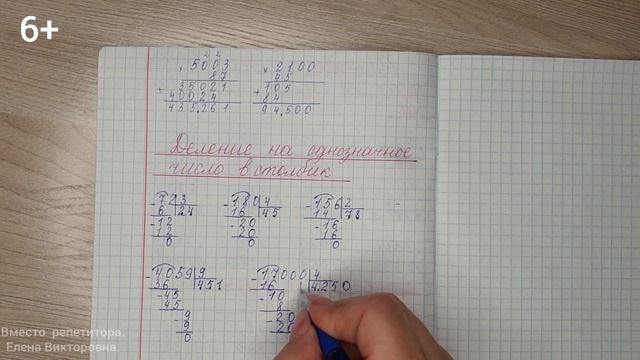 6+
2 2
× 5003
87
+ 35021
40024
435.261
× 2100
45
+ 105
84
94.500
Деление на однозначное
число в столбик
- 72 3
6 24
- 12
12
0
- 180 4
16 45
- 20
20
0
- 156 2
14 78
- 16
16
0
- 4059 9
36 451
- 45
45
- 9
9
0
- 17000 4
16 4.250
- 10
8
20
20
Вместо репетитора.
Елена Викторовна.